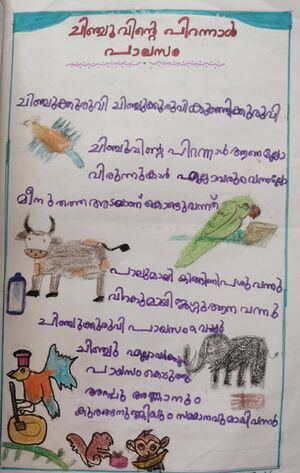 ചിഞ്ചുവിന്റെ പിറന്നാൾ
പായസം
ചിഞ്ചുക്കുരുവി ചിഞ്ചുക്കുരുവി കുഞ്ഞിക്കുരുവി
ചിഞ്ചുവിന്റെ പിറന്നാൾ ആണല്ലോ
വിരുന്നുകാർ എല്ലാവരും വന്നല്ലോ
മീനു തത്ത കൊണ്ടുവന്നത്
പാലുമായി കിങ്ങിണിപശു വന്നു
വിറകുമായി ജഗ്ഗു ആന വന്നു
ചിഞ്ചുക്കുരുവി പായസം വച്ചു
ചിഞ്ചു എല്ലാവർക്കും
പായസം കൊടുത്തു
അണ്ണാനും
സമ്മാനവുമായി വന്നു